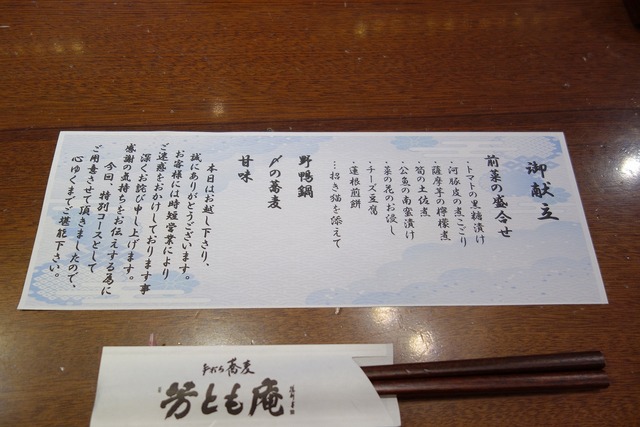 御献立
前菜の盛合せ
・トマトの黒糖漬け
・河豚皮の煮こごり
・薩摩芋の檸檬煮
・筍の土佐煮
・公魚の南蛮漬け
・菜の花のお浸し
・チーズ豆腐
・蓮根煎餅
…招き猫を添えて
野鴨鍋
〆の蕎麦
甘味
本日はお越し下さり、
誠にありがとうございます。
お客様には時短営業により
ご迷惑をおかけしております事
深くお詫び申し上げます。
感謝の気持ちをお伝えする為に
今回、特別コースとして
ご用意させて頂きましたので、
心ゆくまでご堪能下さい。
手打ち蕎麦
芳とも庵